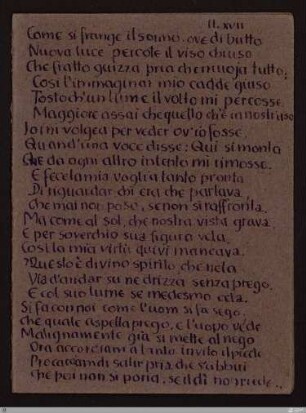 II. XVII
Come si frange il sonno, ove di butto
Nuova luce percote il viso chiuso
Che fratto guizza pria che muoja tutto;
Così l'immaginar mio cadde giuso
Tosto ch'un lume il volto mi percosse
Maggiore assai che quello ch'è in nostr'uso
Io mi volgea per veder ov'io fosse,
Quand'una voce disse: Qui si monta
Che da ogni altro intento mi rimosse.
E fece la mia voglia tanto pronta
Di riguardar chi era che parlava,
Che mai non posa, se non si raffronta.
Ma come al sol, che nostra vista grava
E per soverchio sua figura vela,
Così la mia virtù quivi mancava.
Questo è divino spirito, che ne la
Via d'andar su ne drizza senza prego,
E col suo lume se medesmo cela.
Si fa con noi come l'uom si fa sego.
che quale aspetta prego, e l'uopo vede
Malignamente già si mette al nego
Ora accordiam a tanto invito il piede
Procacciamdi salir pria che s'abbui
Che poi non si poria, se il dì non riede..